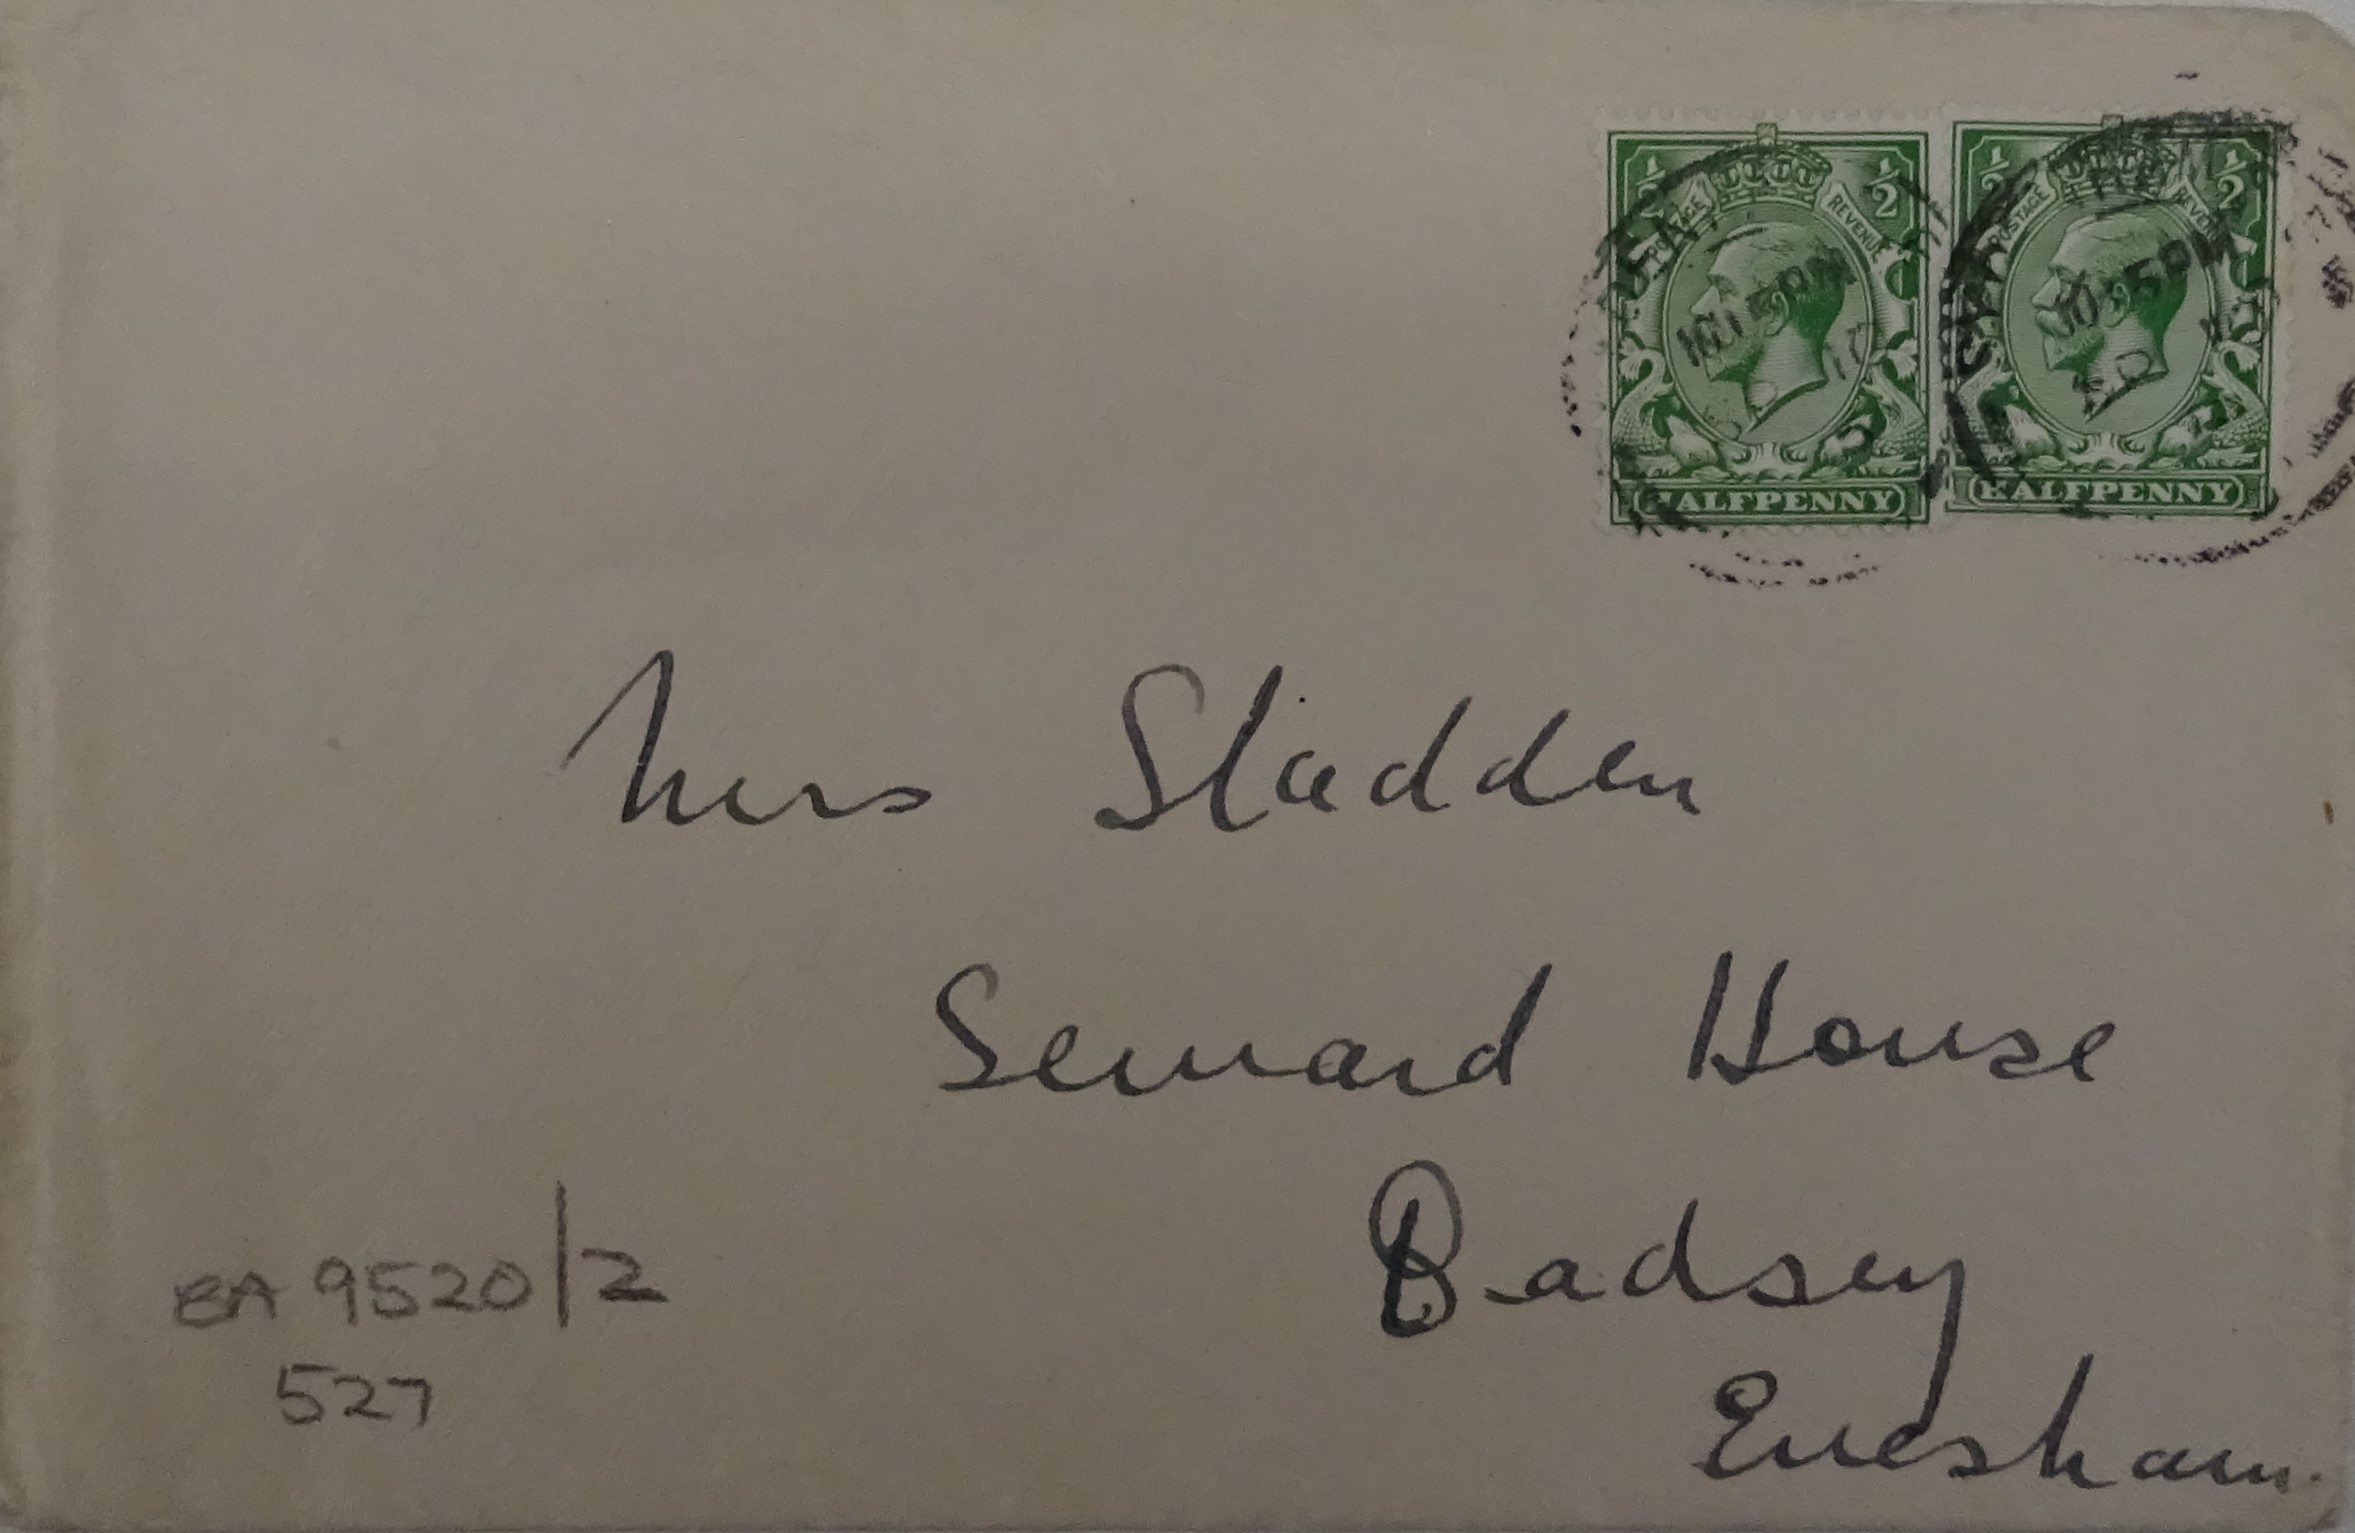 ½ POSTAGE REVENUE ½
HALFPENNY
½ POSTAGE REVENUE ½
HALFPENNY
Mrs Sladden
Seward House
Badsey
Evesham.
BA 9520/2
527